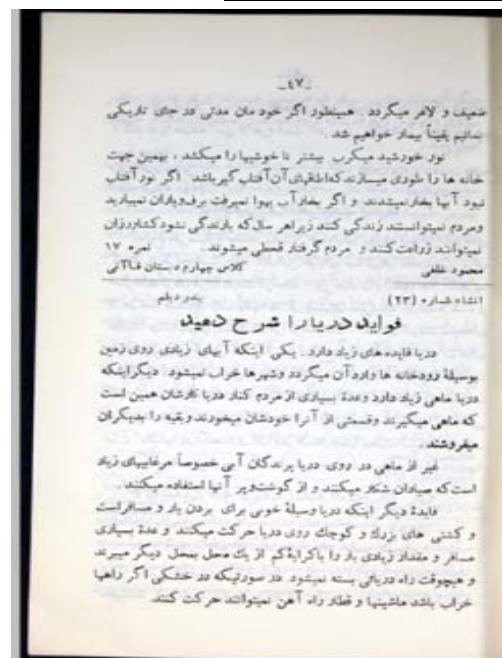 _٤٧_
ضعیف و لاغر میگردد . همینطور اگر خودمان مدتی در جای تاریکی
بمانیم یقیناً بیمار خواهیم شد .
نور خورشید میکرب بیشتر ناخوشیها را میکشد ، بهمین جهت
خانه ها را طوری میسازند که اطاقهای آن آفتاب گیر باشد اگر نور آفتاب
نبود آبها بخار نمیشدند و اگر بخار آب بهوا نمیرفت برف و باران نمیبارید
و مردم نمیتوانستند زندگی کنند زیرا هر سال که بارندگی نشود کشاورزان
نمیتوانند زراعت کنند و مردم گرفتار قحطی میشوند . نمره ۱۷
محمود خلفی کلاس چهارم دبستان قاآنی
انشاء شماره (۲۳) بندر دیلم
فواید دریا را شرح دهید
دریا فایده های زیاد دارد . یکی اینکه آبهای زیادی روی زمین
بوسیلۀ رودخانه ها وارد آن میگردد و شهرها خراب نمیشود . دیگر اینکه
دریا ماهی زیاد دارد و عدۀ بسیاری از مردم کنار دریا کارشان همین است
که ماهی میگیرند و قسمتی از آنرا خودشان میخورند و بقیه را بدیگران
میفروشند .
غیر از ماهی در روی دریا پرندگان آبی خصوصاً مرغابیهای زیاد
است که صیادان شکار میکنند و از گوشت و پر آنها استفاده میکنند .
فایدۀ دیگر اینکه دریا وسیلۀ خوبی برای بردن بار و مسافر است
و کشتی های بزرك و کوچك روی دریا حرکت میکنند و عدۀ بسیاری
مسافر و مقدار زیادی بار را با کرایۀ کم از یك محل بمحل دیگر میبرند
و هیچوقت راه دریائی بسته نمیشود در صورتیکه در خشکی اگر راهها
خراب باشد ماشینها و قطار راه آهن نمیتوانند حرکت کنند.